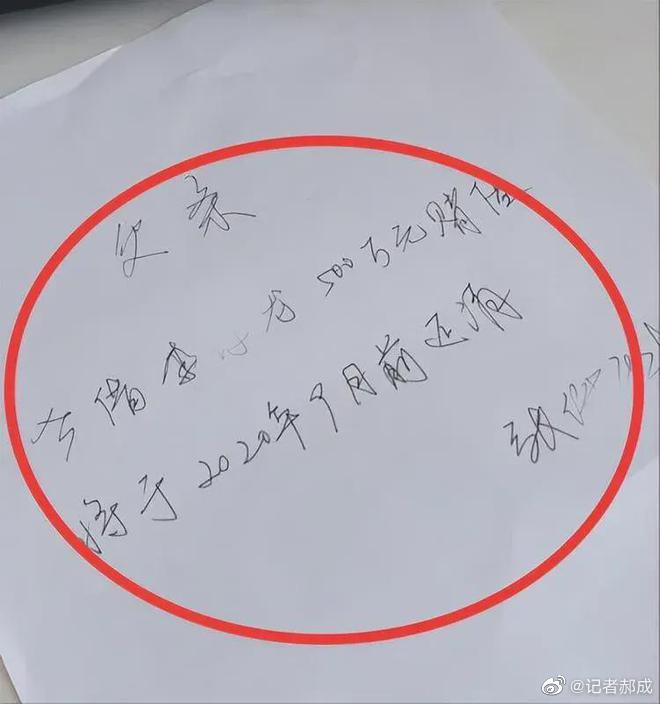 欠条
今借李小龙500万元赌债
将于2020年9月前还清
张
@记者郝成